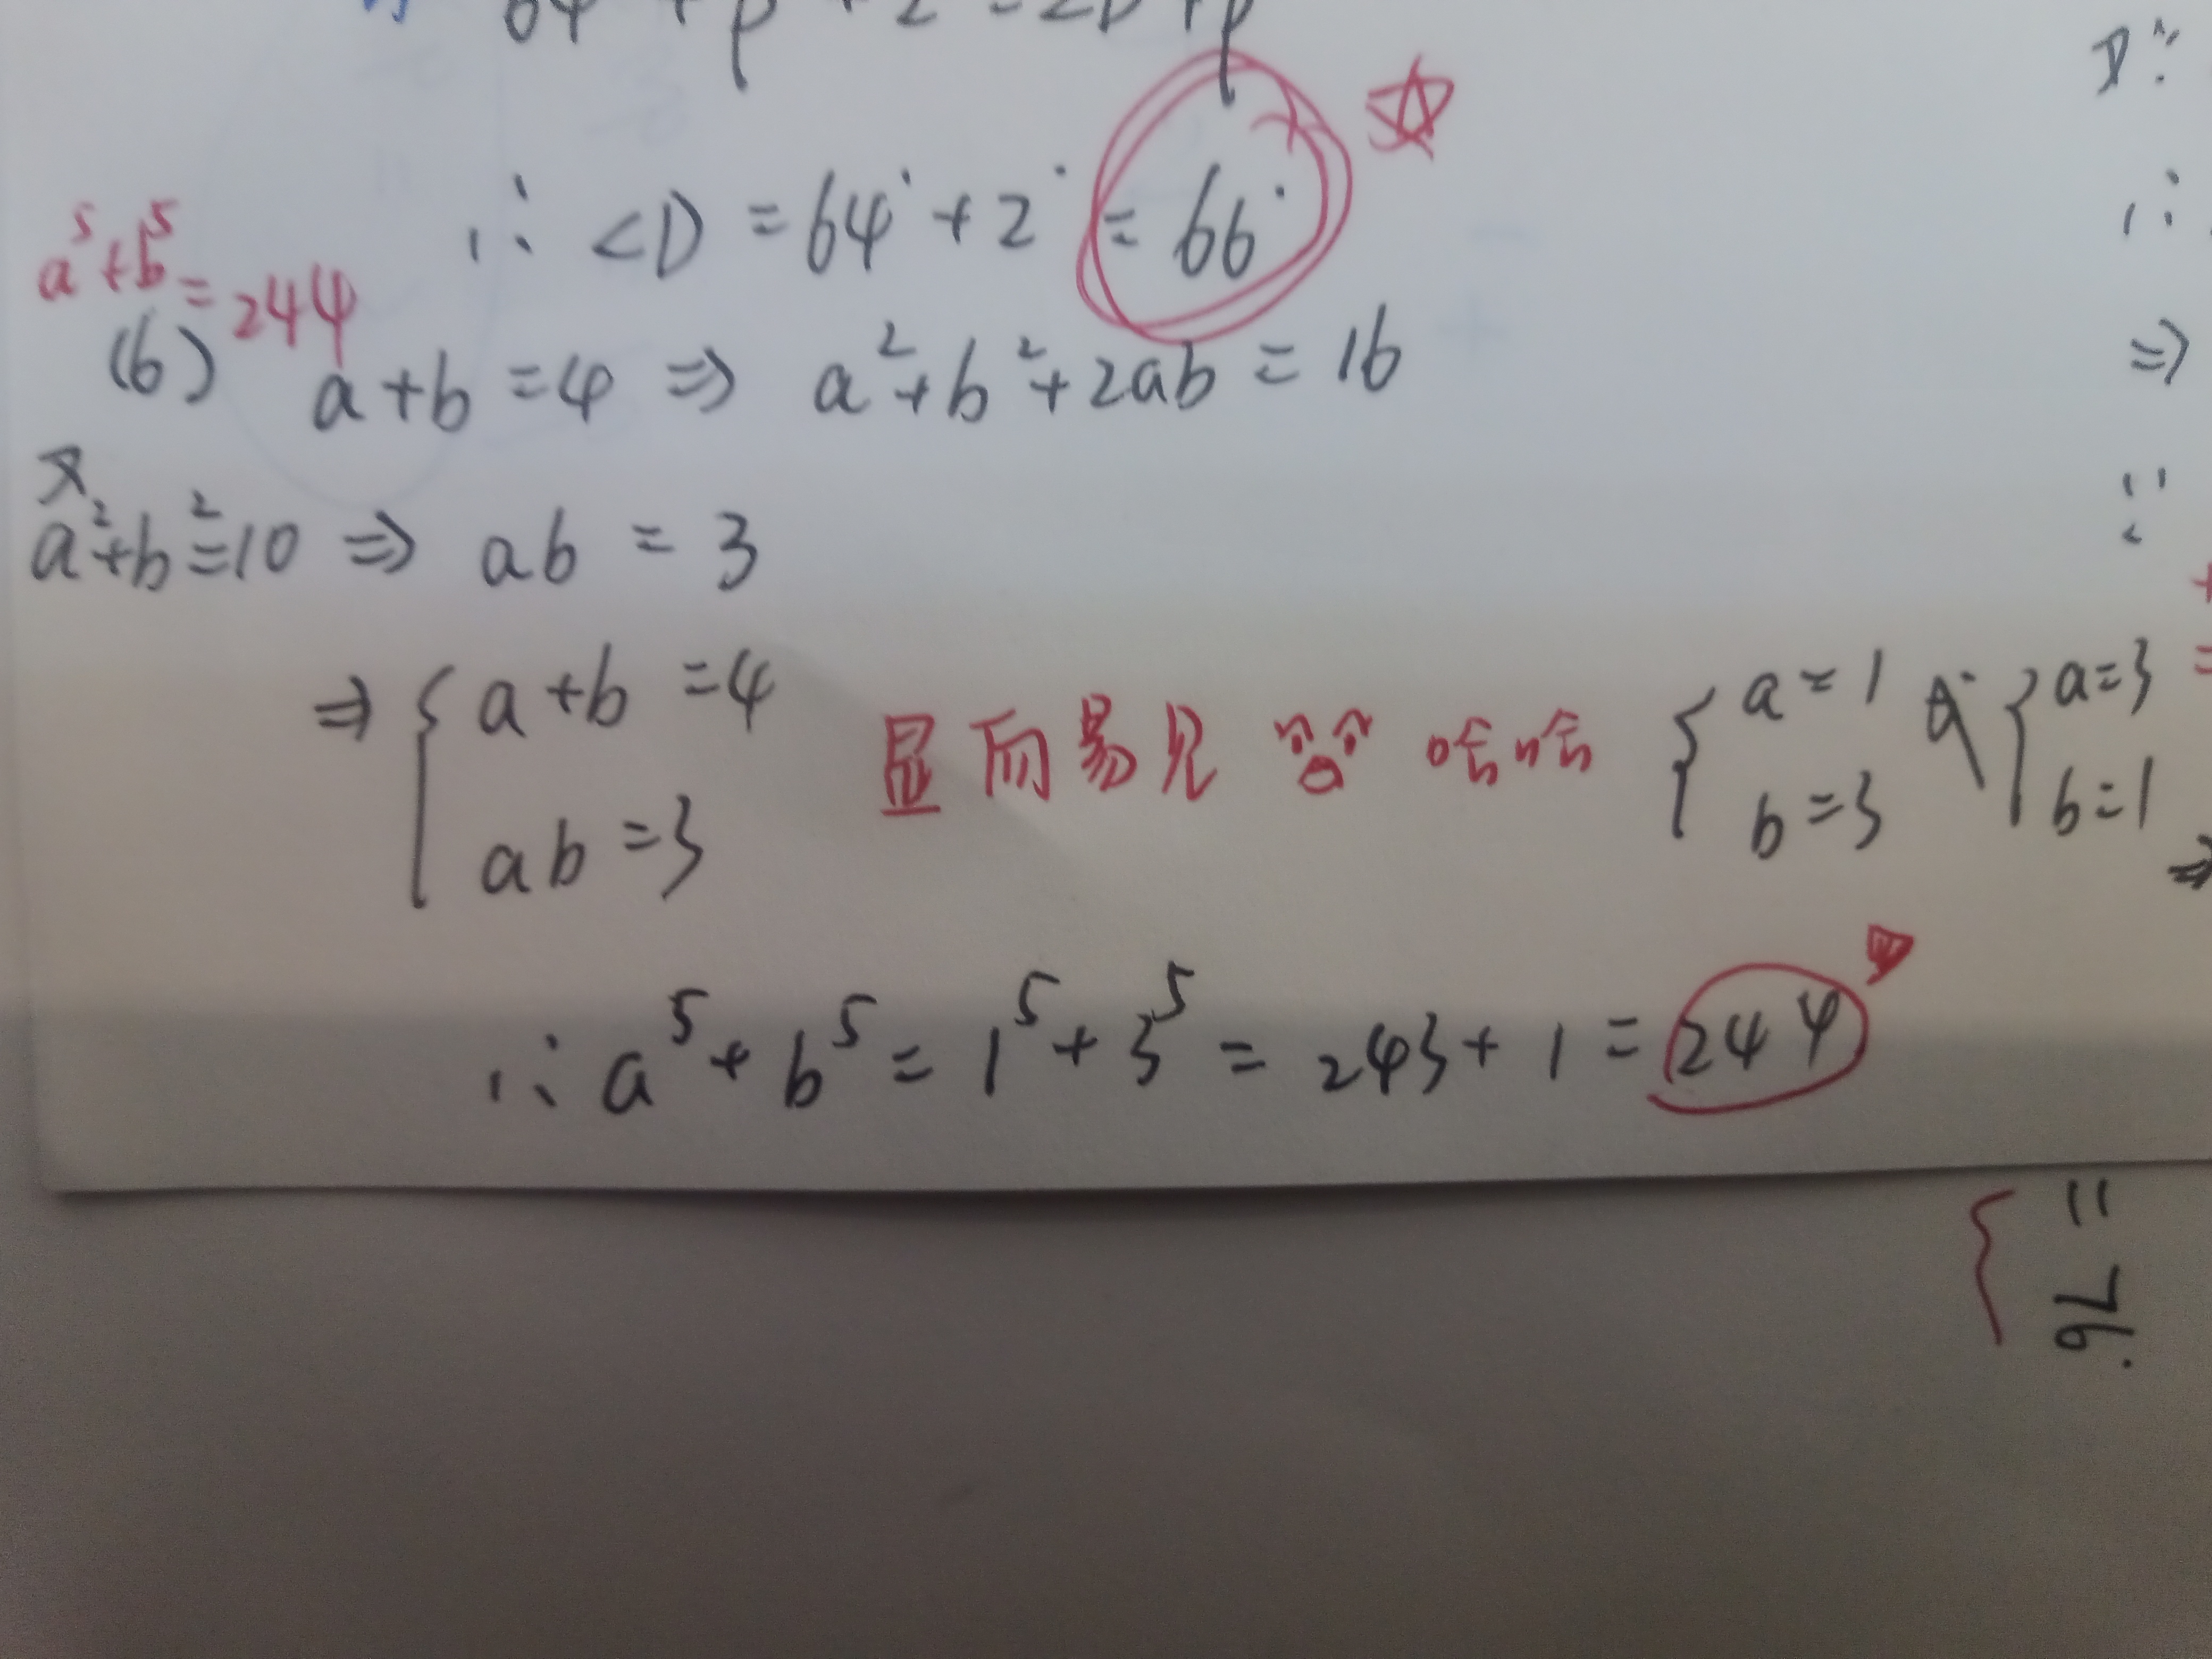 ∴ ∠D = 64° + 2° = 66°
a⁵+b⁵=244
(6) a+b=4 ⇒ a²+b²+2ab=16
又
a²+b²=10 ⇒ ab=3
⇒ { a+b=4
ab=3
显而易见 哈哈
{ a=1
b=3
或 { a=3
b=1
⇒
∴ a⁵+b⁵=1⁵+3⁵=243+1=244